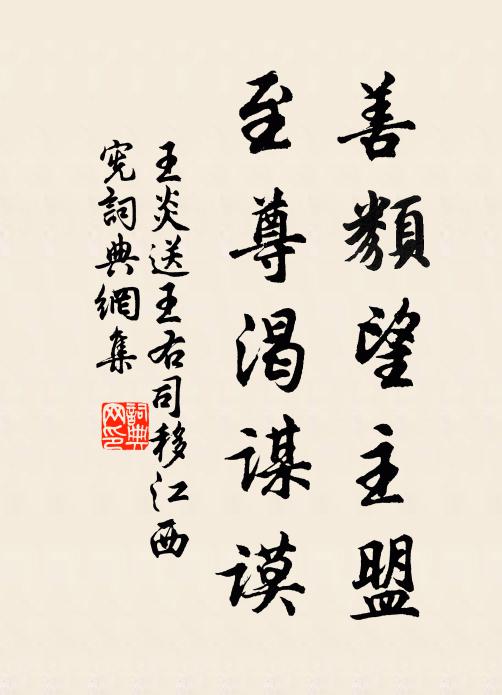 善類望主盟
至尊渴謀謨
王炎送王右司移江西
宪詞典網集
詞典
网印